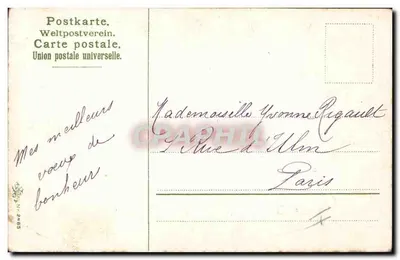 Postkarte.
Weltpostverein.
Carte postale.
Union postale universelle.
Mes meilleurs
voeux de
bonheur.
Mademoiselle Yvonne Rigault
Rue d'Ulm
Paris